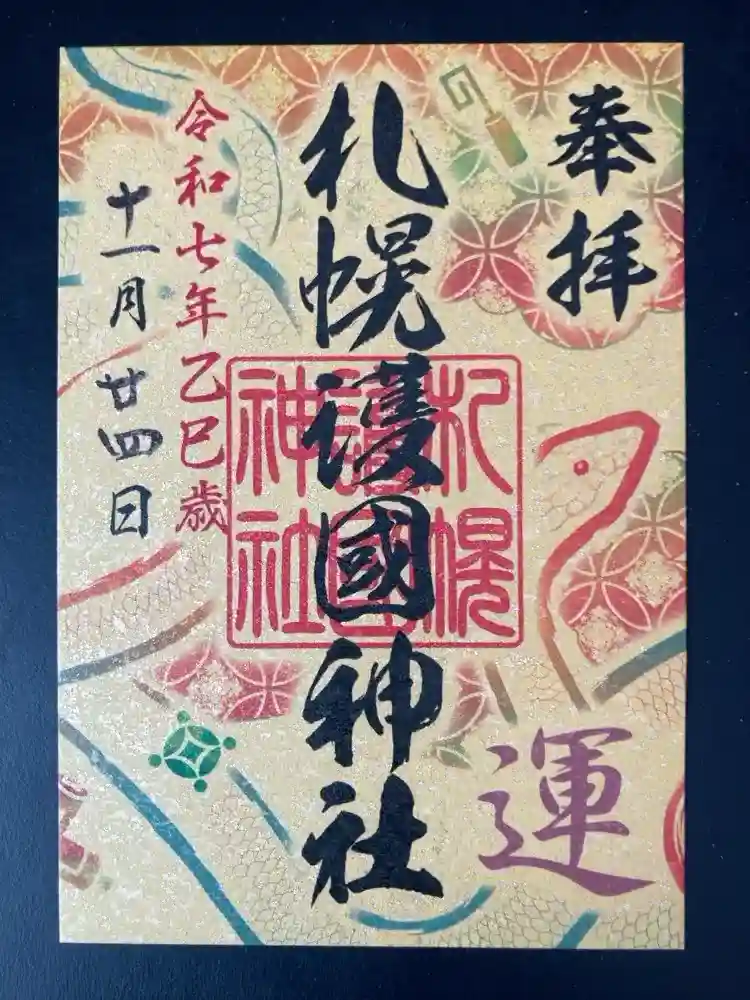 奉拝
運
札幌護國神社
札幌
護國
神社
令和七年乙巳歳
十一月廿四日